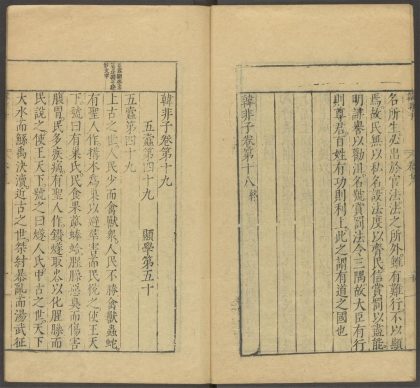 名所生必出於官法法之所外雖有難行不以顯
焉故民無以私名設法度以齊民信賞罰以盡能
明誹譽以勸沮名號賞罰法令三隅故大臣有行
則尊君百姓有功則利上此之謂有道之國也
韓非子卷第十八終
韓非子卷第十九
五蠹第四十九 顯學第五十
五蠹第四十九
上古之世人民少而禽獸衆人民不勝禽獸蟲蛇
有聖人作搆木爲巢以避羣害而民悅之使王天
下號曰有巢氏民食果蓏蜯蛤腥臊惡臭而傷害
腹胃民多疾病有聖人作鑽燧取火以化腥臊而
民說之使王天下號之曰燧人氏中古之世天下
大水而鯀禹決瀆近古之世桀紂暴亂而湯武征